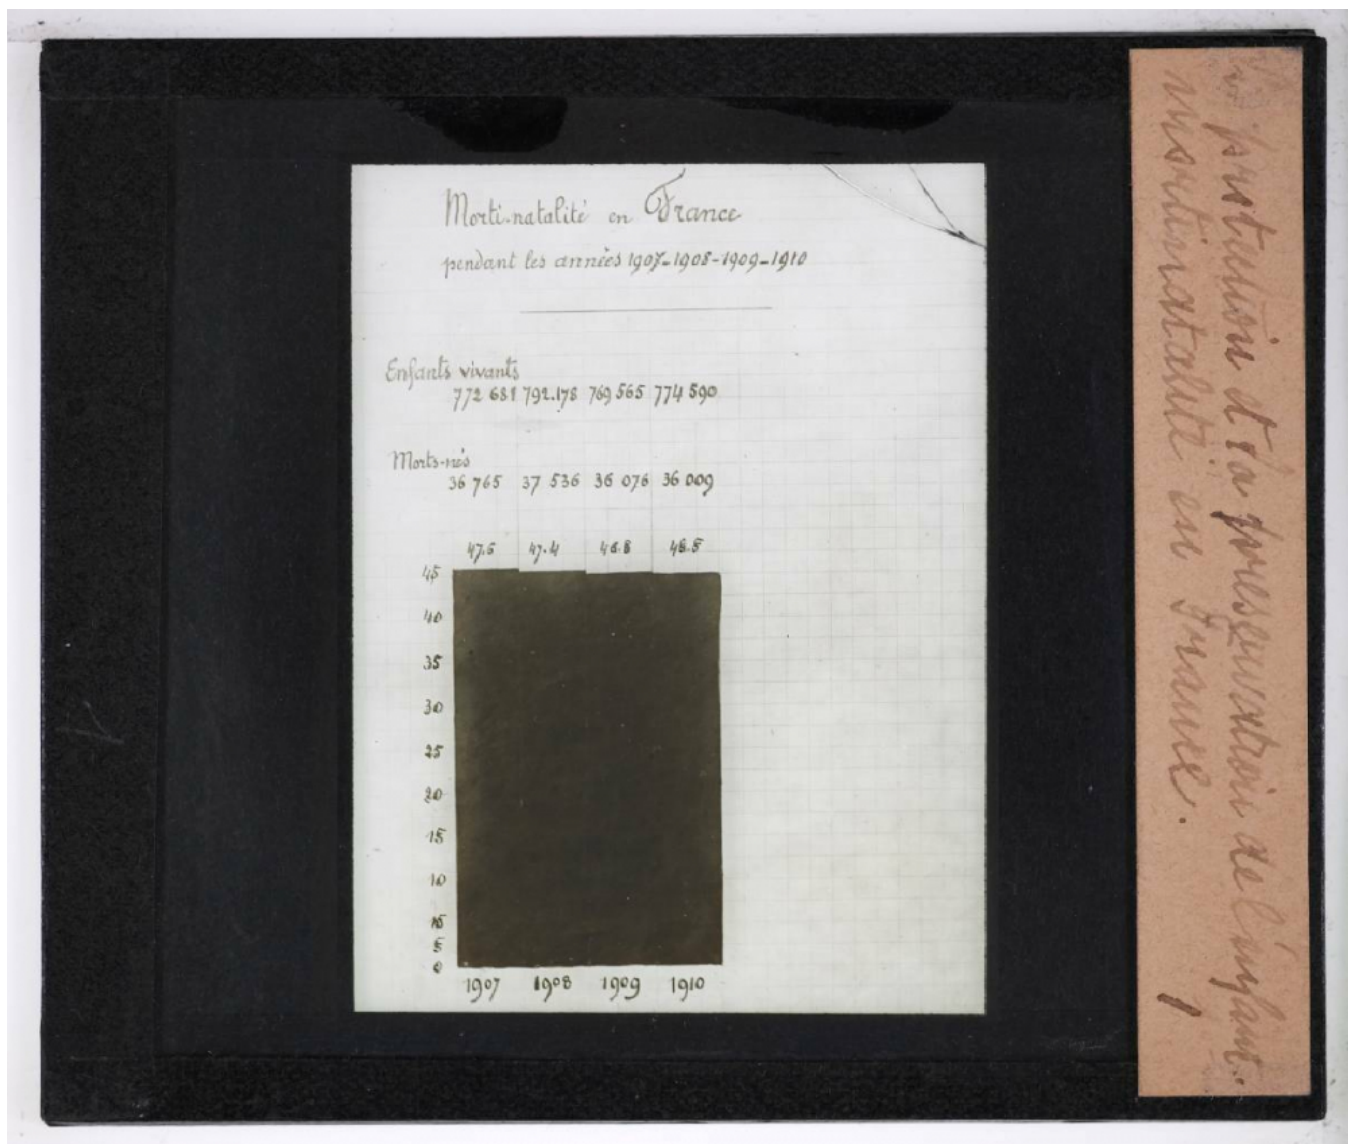 Morti-natalité en France
pendant les années 1907-1908-1909-1910
Enfants vivants
772 681 792.178 769 565 774 590
Morts-nés
36 765 37 536 36 076 36 009
47.6 47.4 46.8
45
40
35
30
25
20
15
10
5
0
1907 1908 1909 1910
et la préservation de l'enfant.
mortinatalité en France.
1